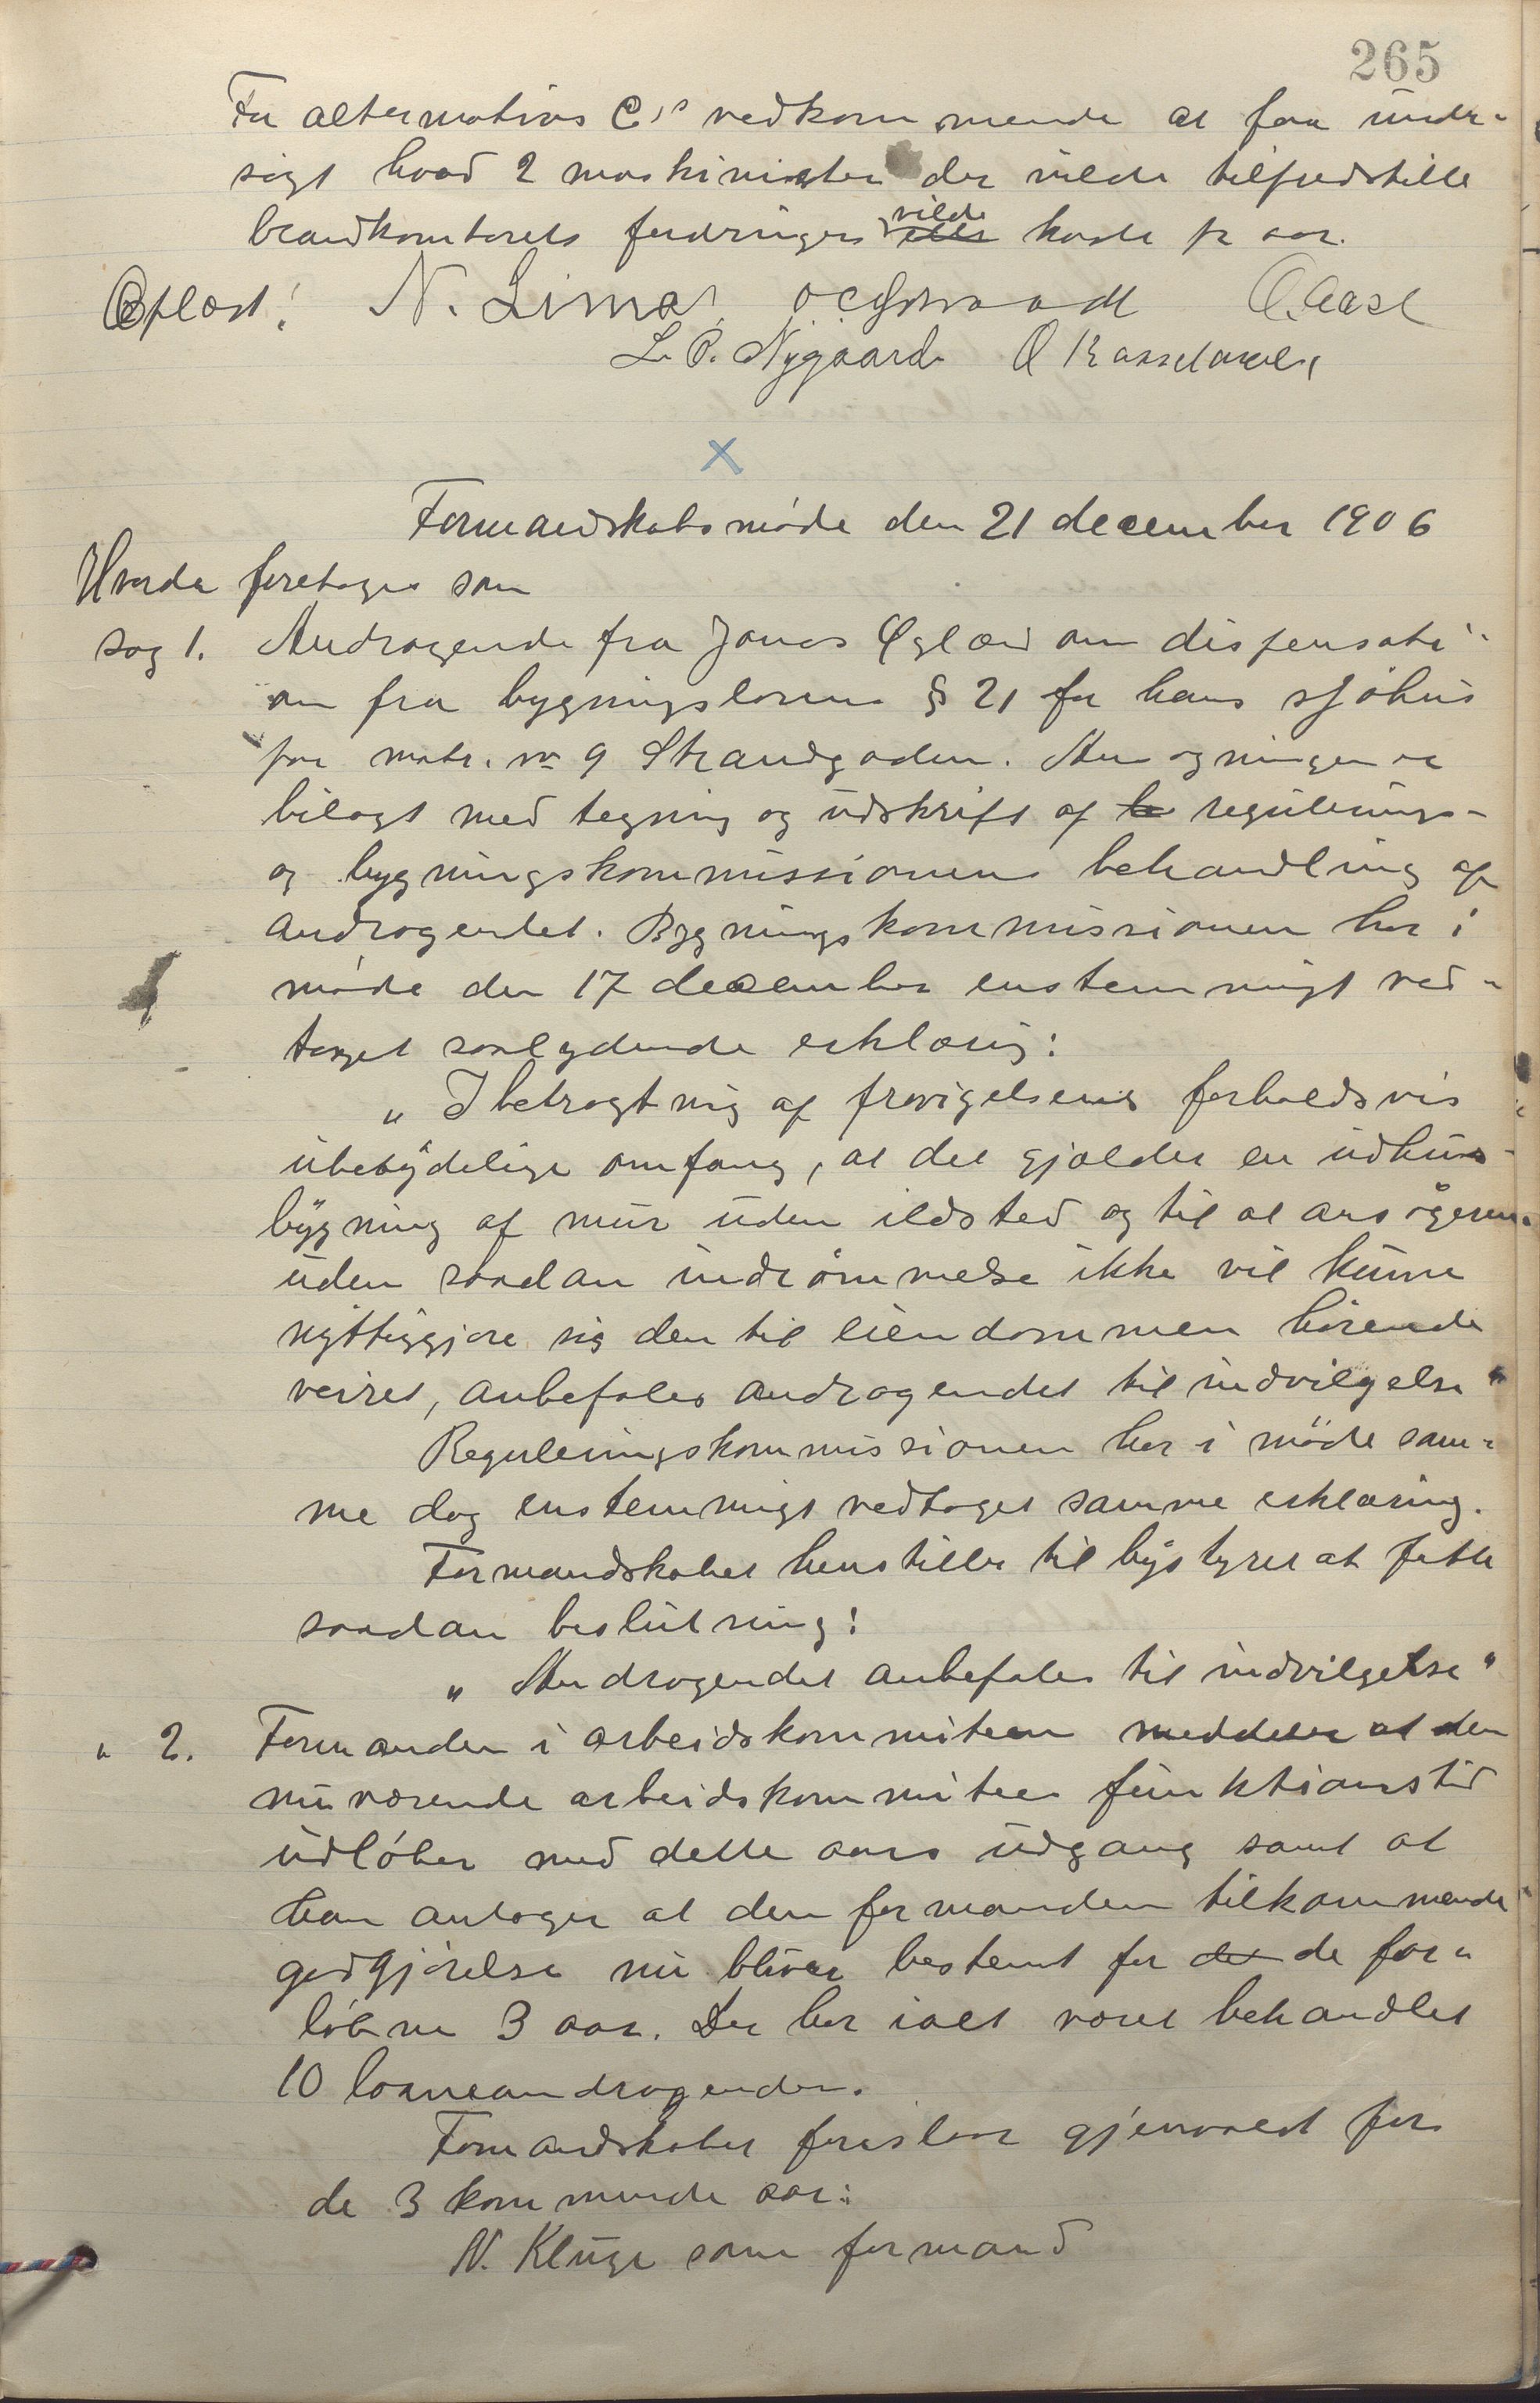 265
For alternativ C's vedkommende at faa under-
søgt hvad 2 maskinister der vilde tilfredstille
brandkontorets fordringer vilde koste pr aar.
Oplæst! N. Lima O. Aase
L. P. Nygaard O Rasselarsen
Formandskabsmøde den 21 december 1906
Hvorda foretoges som
sag 1. Andragende fra Jonas Øglænd om dispensati-
on fra bygningslovens § 21 for hans sjøhus
paa matr. no 9 Strandgaden. Ansøgningen er
bilagt med tegning og udskrift af regulerings-
og bygningskommissionens behandling af
andragendet. Bygningskommissionen har i
møde den 17 december enstemmigt ved-
taget saalydende erklæring:
„ I betragtning af fravigelsens forholdsvis
ubetydelige omfang, at det gjælder en udhus-
bygning af mur uden ildsted og til at ansøgeren
uden saadan indrømmelse ikke vil kunne
nyttiggjøre sig den til eiendommen hørende
veiret, anbefales andragendet til indvilgelse "
Reguleringskommissionen har i møde sam-
me dag enstemmigt vedtaget samme erklæring.
Formandskabet henstiller til bystyret at fatte
saadan beslutning:
„ Andragendet anbefales til indvilgelse "
" 2. Formanden i arbeidskommiteen meddeler at den
nuværende arbeidskommitees funktionstid
udløber med dette aars udgang samt at
han antager at den formanden tilkommende
godtgjørelse nu bliver bestemt for det de for-
løbne 3 aar. Der har ialt været behandlet
10 laaneandragender.
Formandskabet foreslaar gjenvalgt for
de 3 kommende aar:
N. Kluge som formand